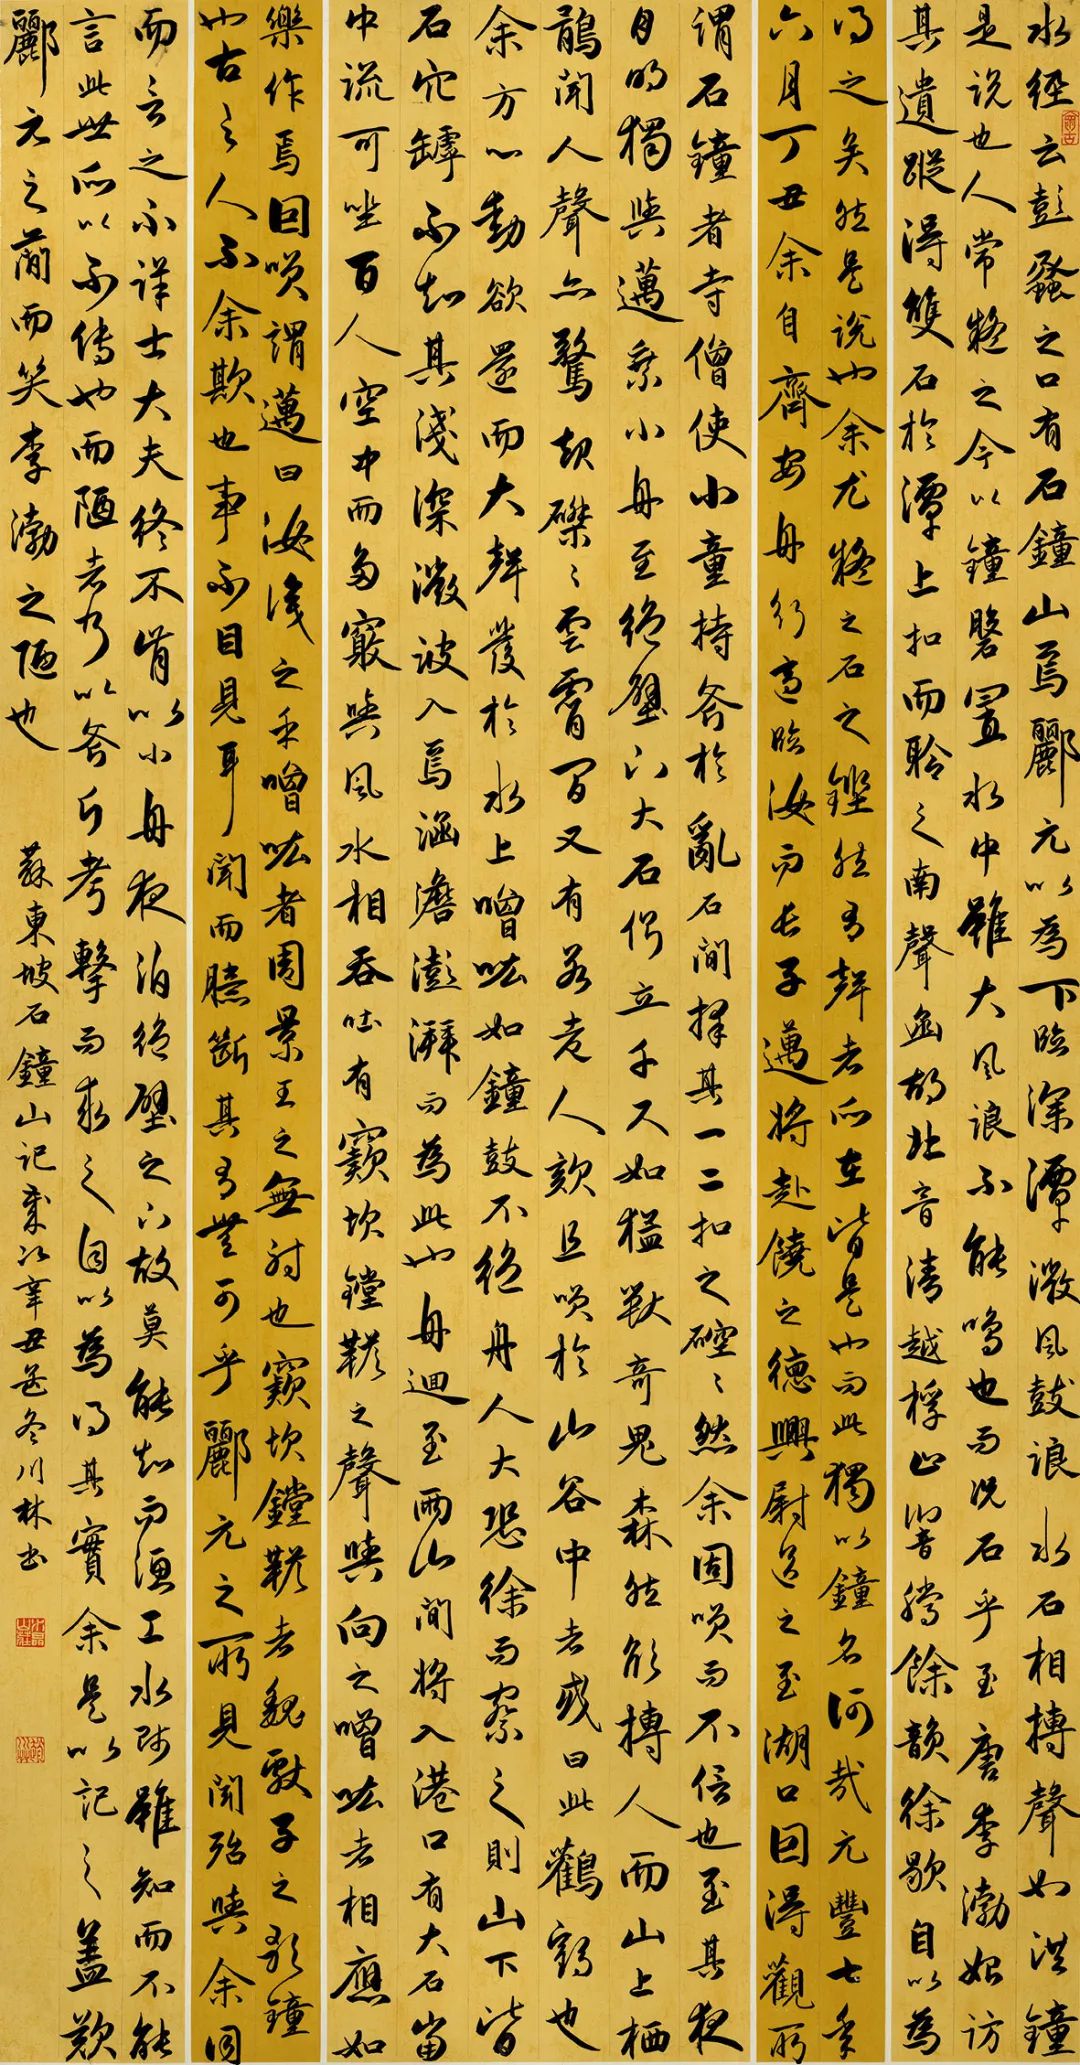 水經云彭蠡之口有石鐘山焉酈元以為下臨深潭微風鼓浪水石相搏聲如洪鐘
是說也人常疑之今以鐘磬置水中雖大風浪不能鳴也而況石乎至唐李渤始訪
其遺蹤得雙石於潭上扣而聆之南聲函胡北音清越桴止響騰餘韻徐歇自以為
得之矣然是說也余尤疑之石之鏗然有聲者所在皆是也而此獨以鐘名何哉元豐七年
六月丁丑余自齊安舟行適臨汝而長子邁將赴饒之德興尉送之至湖口因得觀所
謂石鐘者寺僧使小童持斧於亂石間擇其一二扣之硿〻然余固笑而不信也至其夜
月明獨與邁乘小舟至絕壁下大石側立千尺如猛獸奇鬼森然欲搏人而山上栖
鶻聞人聲亦驚起磔〻雲霄間又有若老人欬且笑於山谷中者或曰此鸛鶴也
余方心動欲還而大聲發於水上噌吰如鐘鼓不絕舟人大恐徐而察之則山下皆
石穴罅不知其淺深微波入焉涵澹澎湃而為此也舟迴至兩山間將入港口有大石當
中流可坐百人空中而多竅與風水相吞吐有窾坎鏜鞳之聲與向之噌吰者相應如
樂作焉因笑謂邁曰汝識之乎噌吰者周景王之無射也窾坎鏜鞳者魏獻子之歌鐘
也古之人不余欺也事不目見耳聞而臆斷其有無可乎酈元之所見聞殆與余同
而言之不詳士大夫終不肯以小舟夜泊絕壁之下故莫能知而漁工水師雖知而不能
言此世所以不傳也而陋者乃以斧斤考擊而求之自以為得其實余是以記之蓋歎
酈元之簡而笑李渤之陋也
蘇東坡石鐘山記歲次辛丑孟冬川林書